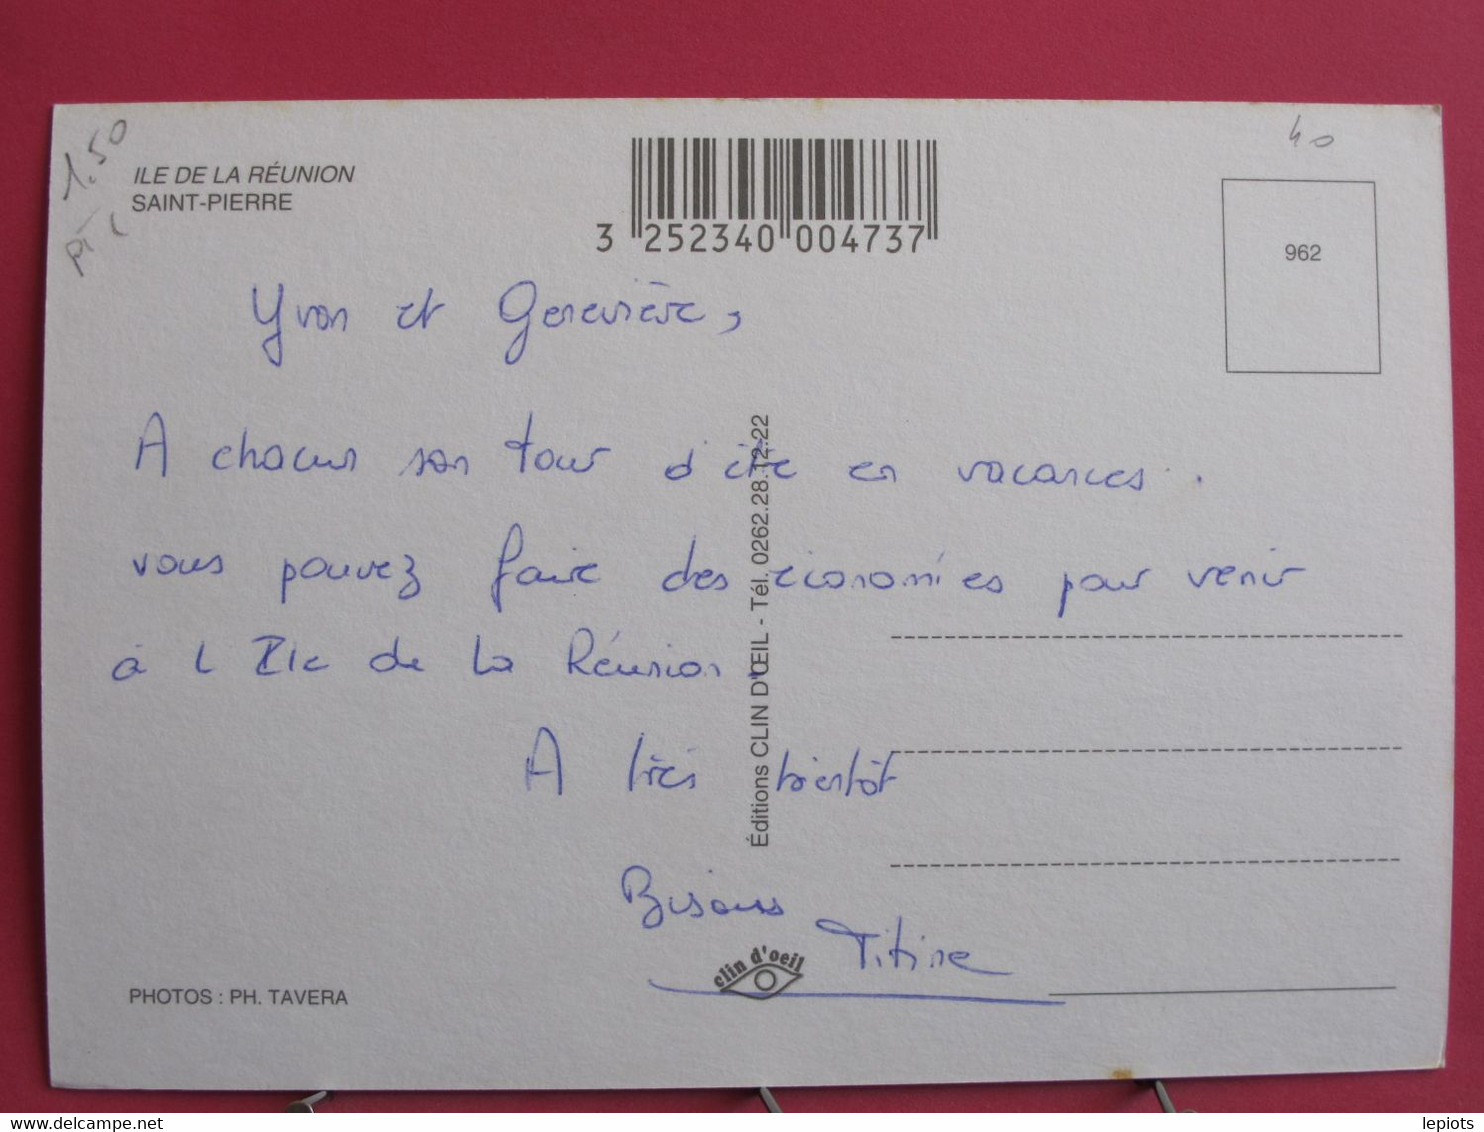 1.50
40
ILE DE LA RÉUNION
SAINT-PIERRE
3 252340 004737
962
Yvon et Geneviève,
A chacun son tour d'être en vacances.
vous pouvez faire des économies pour venir
à l Ile de La Réunion
A très bientôt
Bisous
Titine
Éditions CLIN D'ŒIL - Tél. 0262.28.12.22
clin d'oeil
PHOTOS : PH. TAVERA
lepiots